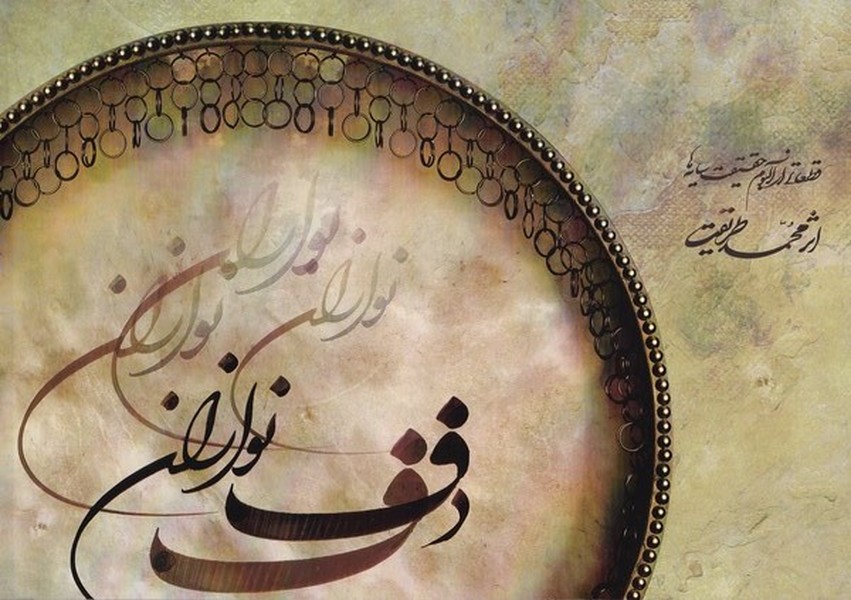 قطعاتی از آلبوم حقیقت سایه ها
اثر محمد طریقت
نوازان
نوازان
نوازان
دف نوازان